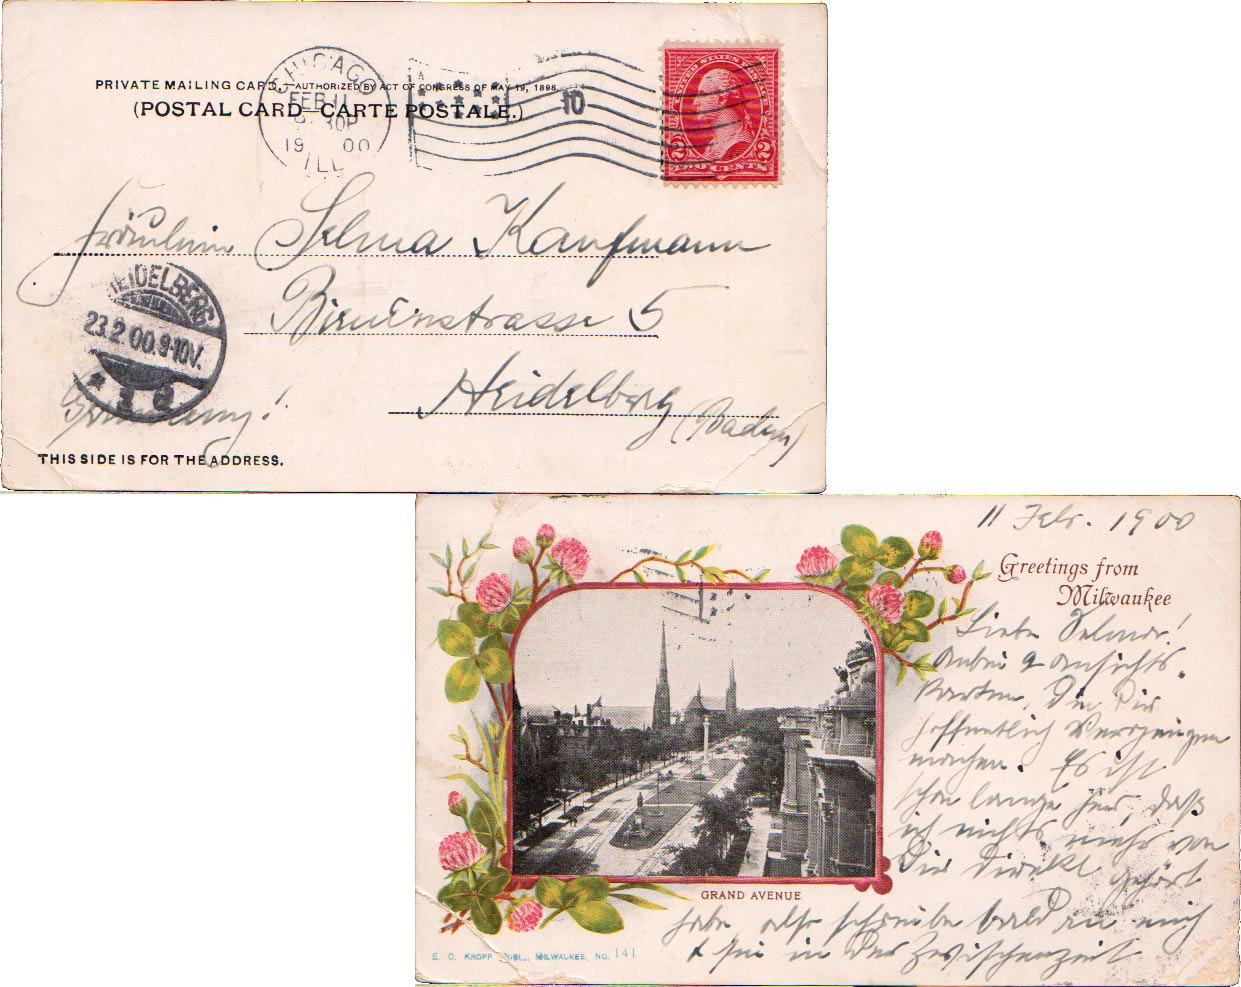 PRIVATE MAILING CARD,—AUTHORIZED BY ACT OF CONGRESS OF MAY 19, 1898.
(POSTAL CARD—CARTE POSTALE.)
CHICAGO
FEB 11
8 30P
19 00
ILL
10
UNITED STATES POSTAGE
2 2
TWO CENTS
Fräulein Selma Kaufmann
Bienenstrasse 5
Heidelberg
(Baden)
Germany!
HEIDELBERG
23.2.00.9-10V.
THIS SIDE IS FOR THE ADDRESS.
11 Febr. 1900
Greetings from
Milwaukee
Liebe Selma!
Anbei 2 Ansichts-
karten, die Dir
hoffentlich Vergnügen
machen. Es ist
schon lange her, daß
ich nichts mehr von
Dir direkt gehört
habe also schreibe bald an mich
in der Zwischenzeit
GRAND AVENUE
E. C. KROPP PUBL., MILWAUKEE, NO. 141